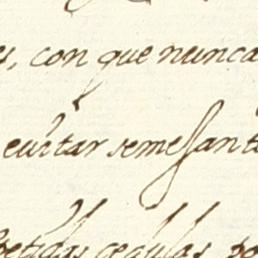 con que nunca
euitar semejant
petidas cedulas, po